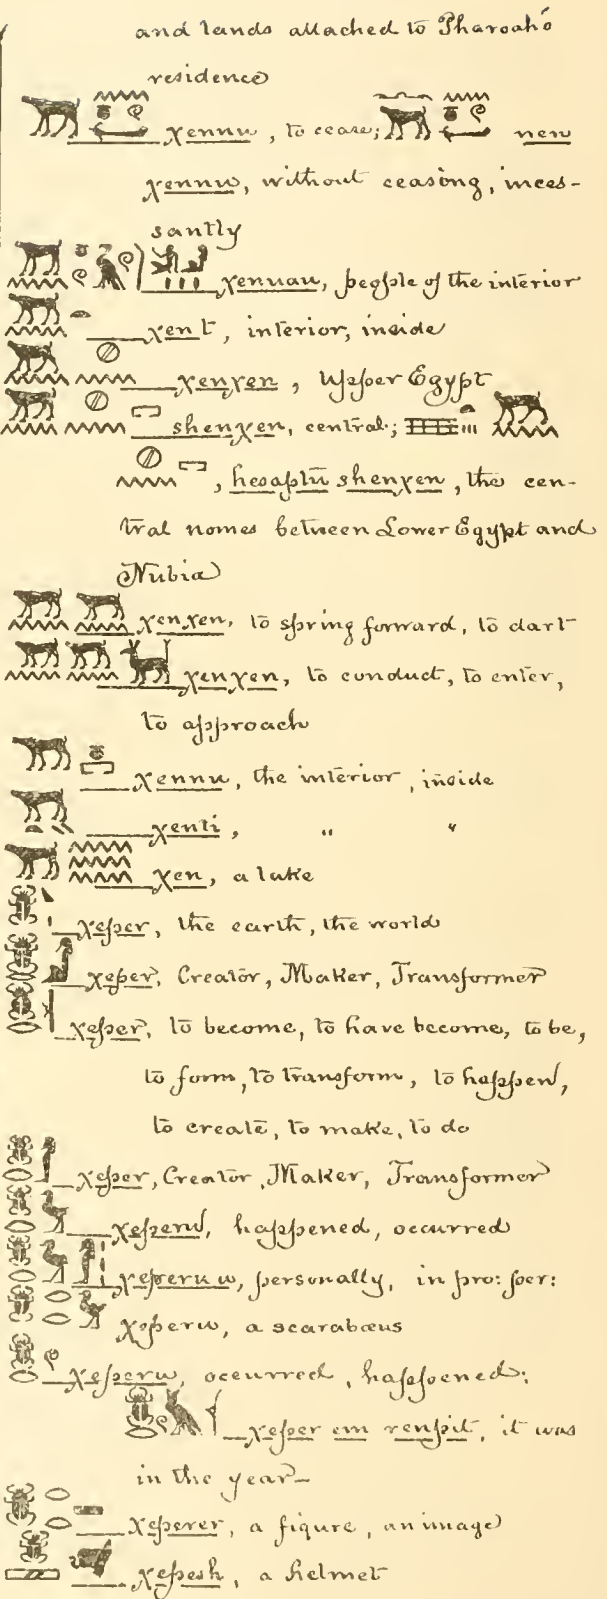 and lands attached to Pharoah's
residence
χennu, to cease; nen
χennu, without ceasing, inces-
santly
χenuau, people of the interior
χent, interior, inside
χenχen, Upper Egypt
shenχen, central;
hesaptu shenχen, the cen-
tral nomes between Lower Egypt and
Nubia
χenχen, to spring forward, to dart
χenχen, to conduct, to enter,
to approach
χennu, the interior, inside
χenti, " "
χen, a lake
χeper, the earth, the world
χeper, Creator, Maker, Transformer
χeper, to become, to have become, to be,
to form, to transform, to happen,
to create, to make, to do
χeper, Creator, Maker, Transformer
χeperu, happened, occurred
χeperu u, personally, in pro: per:
χeperu, a scarabæus
χeperu, occurred, happened;
χeper em renpit, it was
in the year—
χeperer, a figure, an image
χepesh, a helmet